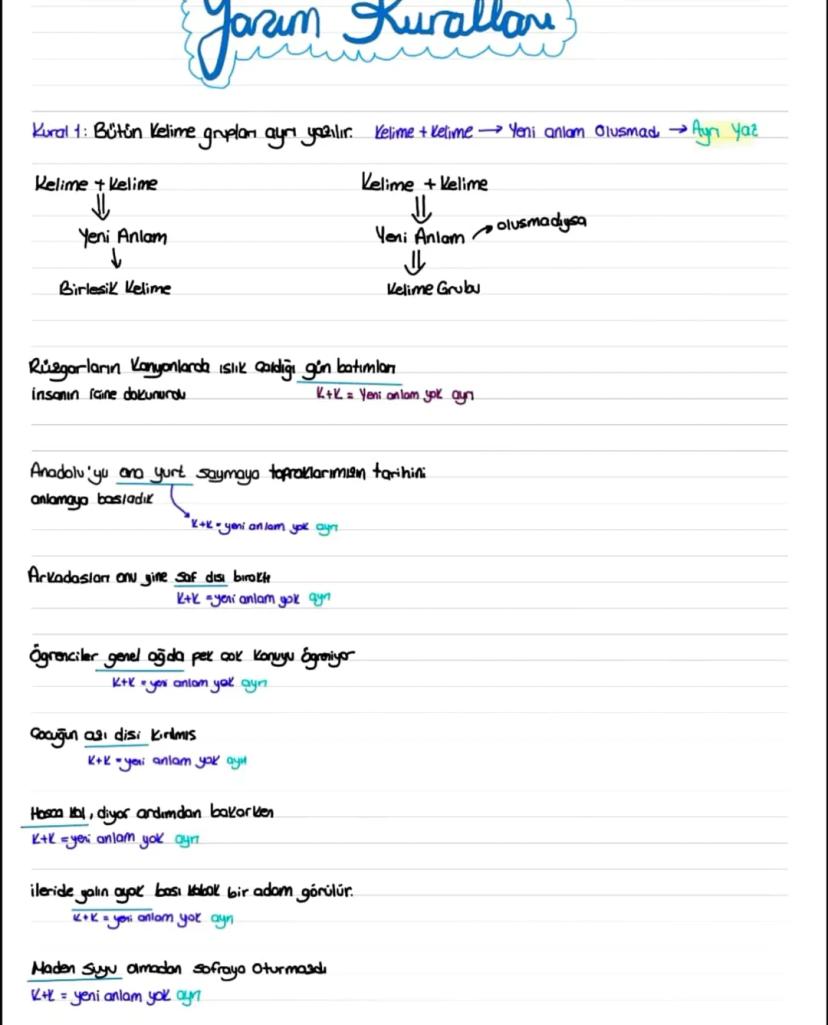 Yazım Kuralları
Kural 1: Bütün Kelime grupları ayrı yazılır. Kelime + Kelime → Yeni anlam Olusmadı → Ayrı Yaz
Kelime + Kelime
Kelime + Kelime
⇓
⇓
Yeni Anlam
Yeni Anlam → olusmadıysa
↓
⇓
Birlesik Kelime
Kelime Grubu
Rüzgarların Kanyonlarda ıslık Çaldığı gün batımları
insanın içine dokunurdu
K+K = Yeni anlam yok ayrı
Anadolu'yu ana yurt saymaya topraklarımızın tarihini
anlamaya basladık
K+K = yeni anlam yok ayrı
Arkadasları onu yine saf dısı bıraktı
K+K = yeni anlam yok ayrı
Ögrenciler genel ağda pek çok Konuyu ögreniyor
K+K = yeni anlam yok ayrı
Çocuğun azı disi Kırılmıs
K+K = yeni anlam yok ayrı
Hosca kal, diyor ardımdan bakarken
K+K = yeni anlam yok ayrı
ileride yalın ayak bası kabak bir adam görülür.
K+K = yeni anlam yok ayrı
Maden Suyu almadan sofraya Oturmazdı
K+K = yeni anlam yok ayrı